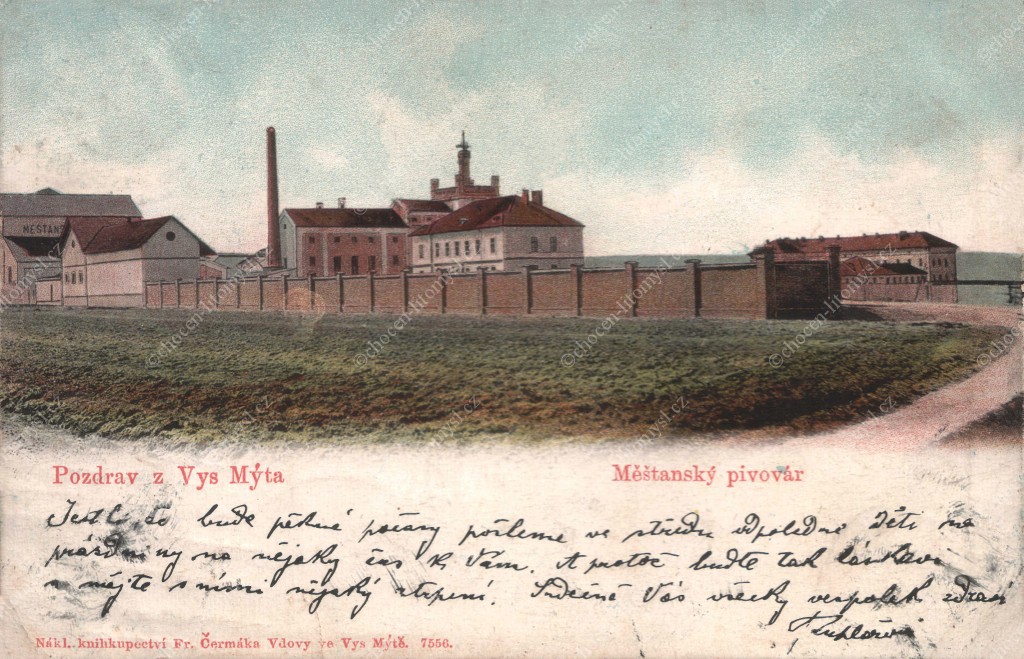 MĚŠŤANS
Pozdrav z Vys Mýta
Měštanský pivovár
Jestli bude pěkné počasy pošleme ve středu odpoledne děti na
prázdniny na nějaký čas k Vám. A protož buďte tak láskaví
a mějte s nimi nějaký strpení. Srdečně Vás všecky vespolek zdraví
Nákl. knihkupectví Fr. Čermáka Vdovy ve Vys Mýtě. 7556.
©chocen-litomysl.cz